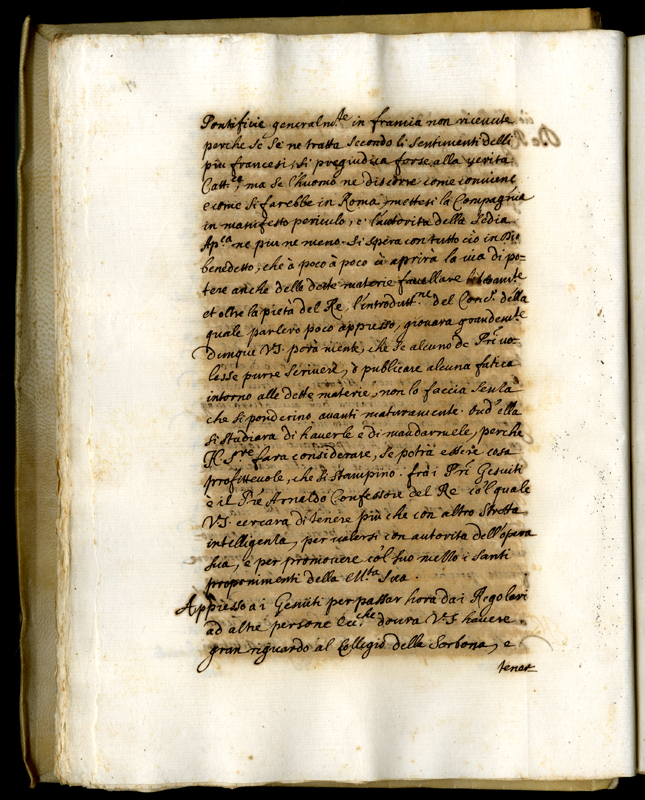 Pontificie generalm.te in francia non ricevute
perche se se ne tratta secondo li sentimenti delli
piu francesi, si pregiudica forse alla verità
Catt.ca, ma se l'huomo ne discorre come conviene
e come si farebbe in Roma, mettesi la Compagnia
in manifesto periculo, e l'autorita della Sedia
Ap.ca ne piu ne meno. Si spera con tutto cio in Dio
benedetto, che à poco à poco si aprirà la via di po-
tere anche delle dette materie favellare
et oltre la pietà del Re, l'introdutt.ne del Conc.o della
quale parlerò poco appresso, giovara grandem.te
Dunque V.S. porà mente, che se alcuno de Pri vo-
lesse purre scrivere, ò publicare alcuna fatica
intorno alle dette materie, non lo faccia senza
che si ponderino avanti maturamente. Ond'ella
si studiara di haverle e di mandarmele, perche
N. S.re fara considerare, se potrà essere cosa
profittevole, che si stampino. frà i Pri Gesuiti
è il Pre Arnaldo Confessore del Re co'l quale
V.S. cercara di tenere piu che con altro stretta
intelligenza, per valersi con autorita dell'opera
sua, e per promovere co'l suo mezzo i santi
proponimenti della M.tà Sua.
Appresso a i Gesuiti per passar hora da i Regolari
ad altre persone Ecc.che dovra V.S. havere
gran riguardo al Collegio della Sorbona, e
tener